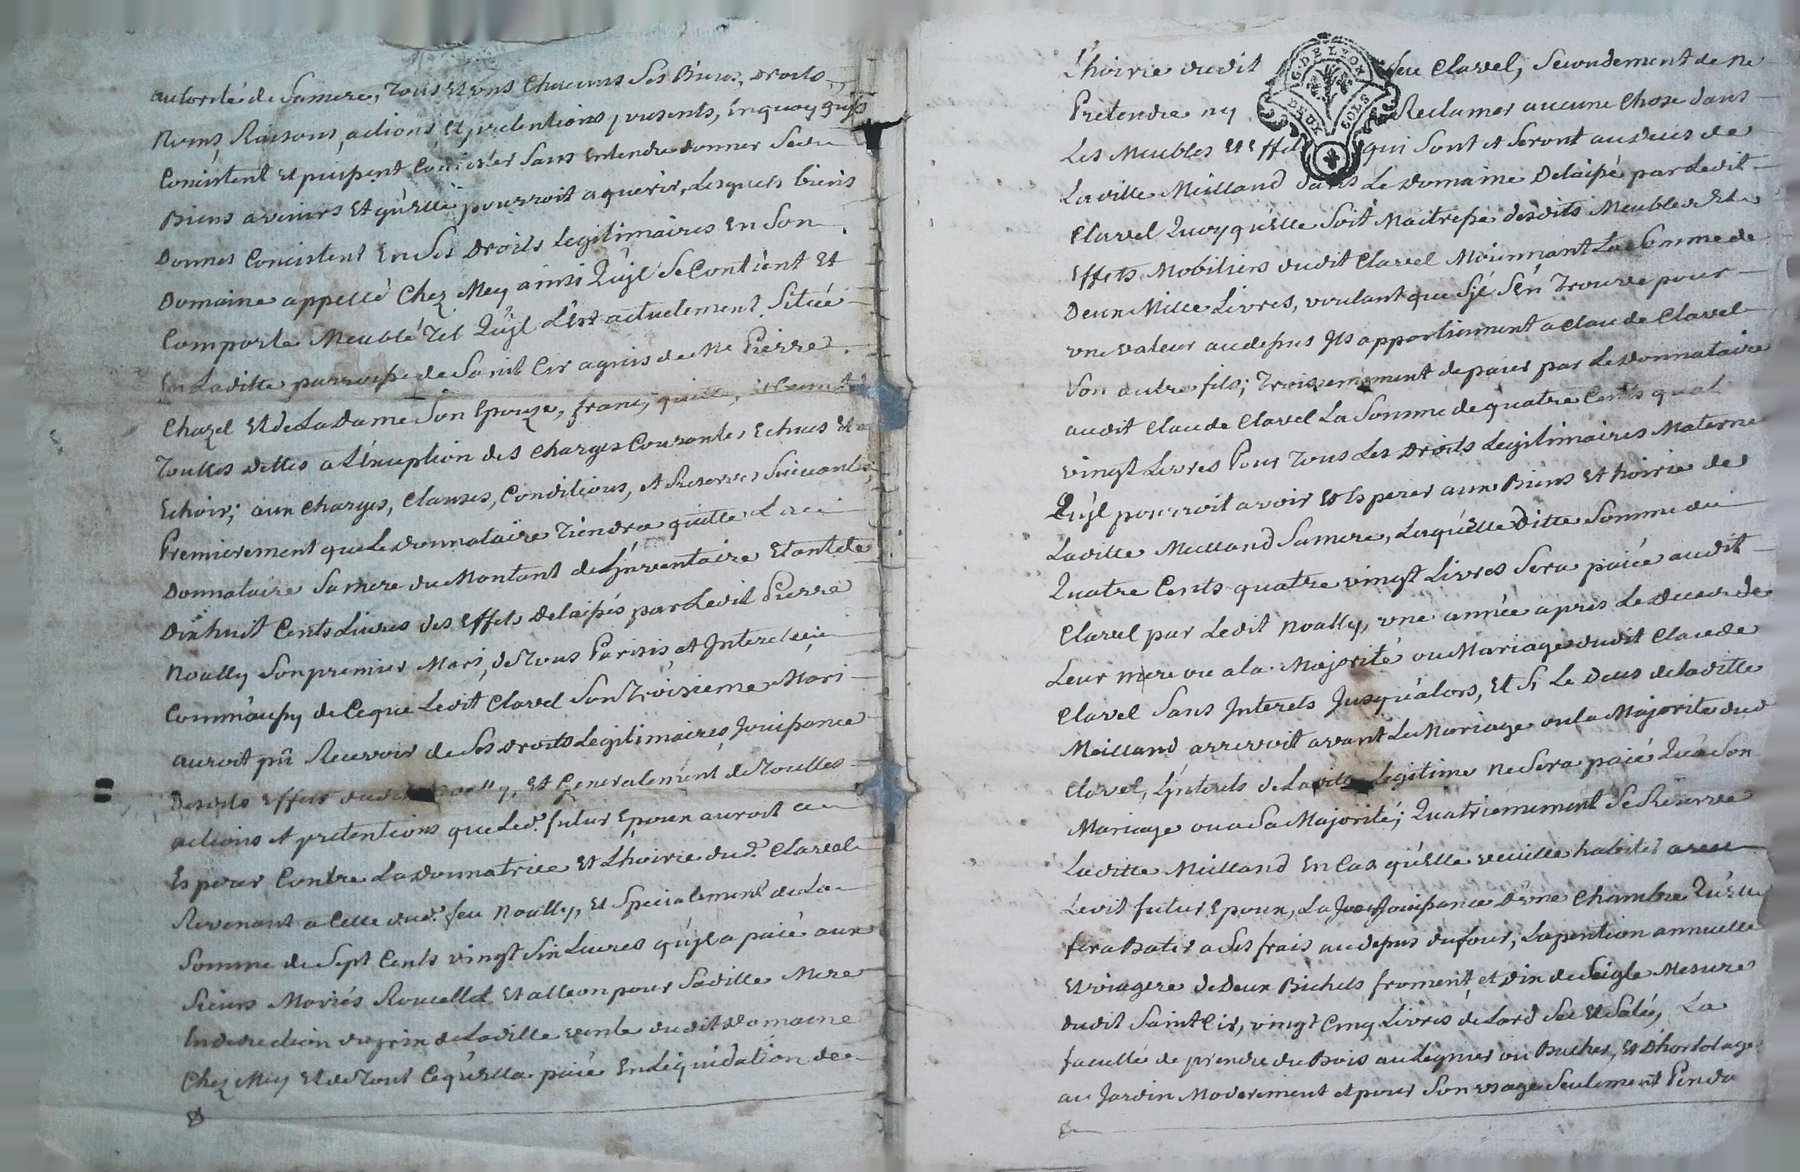 autorité de Samere, Tous et uns Chacuns Ses Biens, Droits
Noms, Raisons, actions, et pretentions, presents, Enquoy qu'ils
Conistent et puissent Consister Sans Entendre donner Sedu
Biens avenirs et qu'elle pourroit aquerir, Lesquels biens
Donnés Conistent En Ses Droits Legitimaires En Son
Domaine appellé Chez Mey ainsi Qu'jl Se Contient Et
Comporte Meublé Tel Qu'jl L'Est actuelement, Situé
En Laditte parroisse de Saint Cir aquis de Me Pierre
Chazel Et de La Dame Son Epouze, franc, quitte,
Touttes dettes a L'Exception des Charges Courantes Echues Et a
Echoir; aux Charges, Clauses, Conditions, et Reserves Suivantes,
Premierement que Le donnataire Tiendra quitte Lad
Donnataire Samere du Montant de L'jnventaire Etant de
Dixhuit Cents Livres des Effets delaissés par Ledit Pierre
Noally Son premier Mari, de Tous Parisis et Interets
Comm'aussy de Ceque Ledit Clavel Son Troisieme Mari
auroit pû Recevoir de Ses Droits Legitimaires, Jouissance
Desdits Effets dudit Noally, Et Generalement de Touttes
actions et pretentions que Led. futur Epoux auroit a
Esperer Contre La Donnatrice Et L'hoirie dud. Clavel
Revenant a Celle dud. feu Noally, Et Specialement de La
Somme de Sept Cents vingt Six Livres qu'jl a paié aux
Sieurs Mariés Rouellet Et alleon pour Saditte Mere
In deduction du prix de Laditte vente dudit Domaine
Chez Mey Et de Tout Ce qu'Ella paié En Liquidation de
L'hoirie dudit feu Clavel, Secondement de ne
G. DE LYON
DEUX SOLS
Pretendre ny Reclamer aucune Chose dans
Les Meubles et Effets qui Sont et Seront audeces de
Laditte Meilland dans Le Domaine Delaissé par Ledit
Clavel Quoyqu'Elle Soit Maitresse desdits Meubles Et
Effets Mobiliers dudit Clavel Moiennant La Somme de
Deux Mille Livres, voulant que S'jl S'En Trouve pour
une valeur audessus Jls appartiennent a Claude Clavel
Son autre fils; Troisiemement de paier par Le Donnataire
audit Claude Clavel La Somme de quatre Cents quat
vingt Livres Pour Tous Les Droits Legitimaires Materne
Qu'jl pourroit avoir Et Esperer aux Biens Et hoirie de
Laditte Meilland Samere, Lesqu'Elle Ditte Somme de
Quatre Cents quatre vingt Livres Sera paiée audit
Clavel par Ledit Noally, une année apres Le Deces de
Leur mere ou a la Majorité ou Mariage dudit Claude
Clavel Sans Interets Jusqu'alors, Et Si Le Deces de Laditte
Meilland arrivoit avant Le Mariage ou la Majorité dud
Clavel, L'jnterets de Ladite Legitime Ne Sera paié Qu'a Son
Mariage ou a Sa Majorité; Quatriemement Se Reserve
Laditte Meilland En Cas qu'Elle veuille habiter avec
Ledit futur Epoux, La Jouissance D'une Chambre Qu'Elle
fera Batir a Ses frais audessus du four, La pention annuelle
Et viagere de Deux Bichets froment, et dix de Seigle Mesure
dudit Saint Cir, vingt Cinq Livres de Lard Sec Et Salé, La
faculté de prendre du Bois au Legnier ou Bucher, Et d'hortolage
au Jardin Moderement et pour Son usage Seulement Penda